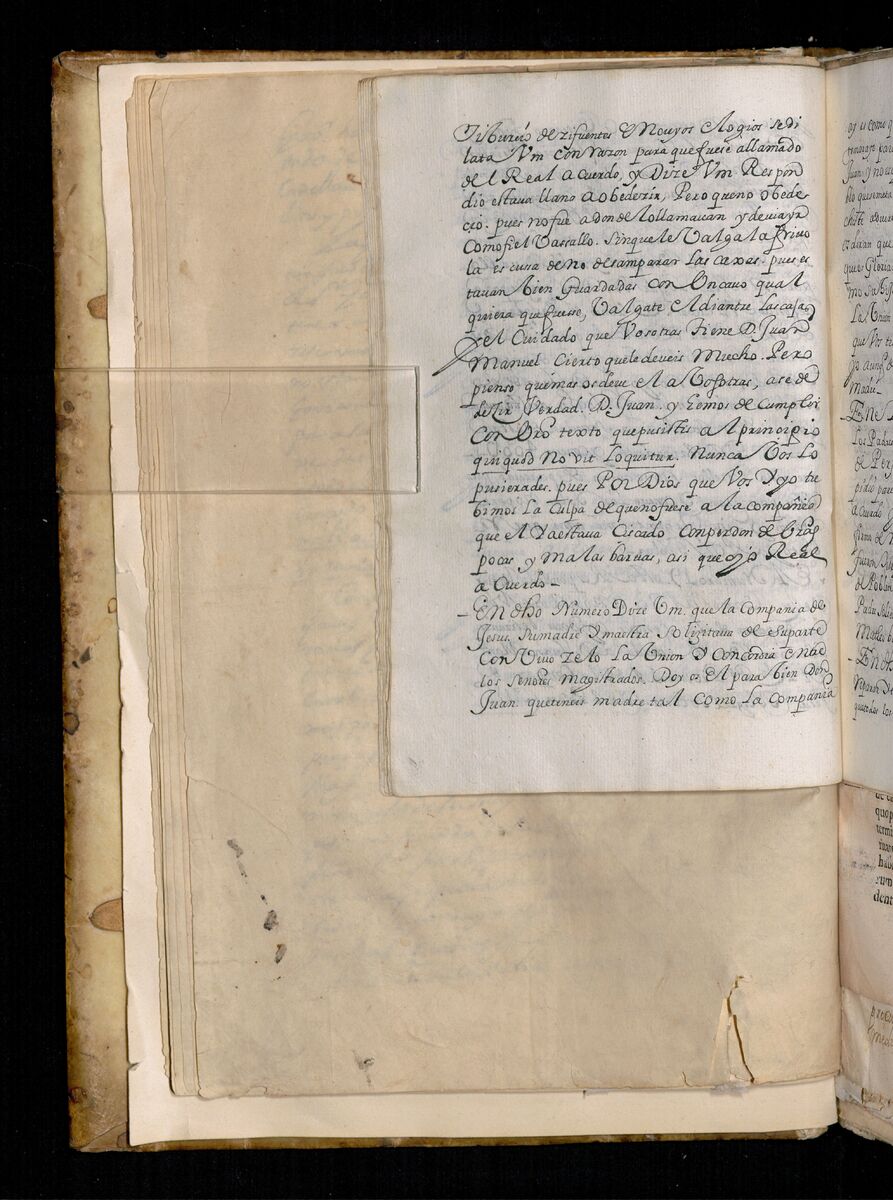 Tiburcio de zifuentes En Cuyos elogios sedi
lata Vm con razon para que fuese allamado
del Real acuerdo, y Dize Vm Respon
dio estava llano a obedezir, Pero que no obede
cio. pues no fue a donde lo llamavan y deviayr
Como fiel Vassallo. Sin que le Valga la frivo
la escusa de no desamparar las caxas. pues es
tavan bien Guardadas con Un cavo qual
quiera que fuesse, Valgate el diantre las cajas
y el Cuidado que Vosotras tiene D. Juan
Manuel Cierto que le deveis Mucho. Pero
pienso que mas os deve el a Vosotras, a se de
dezir Verdad. D. Juan. y Hemos de Cumplir
Con Vro texto que pusistis al principio
qui quod No vit Loquitur. Nunca Vos lo
pusierades. pues Por Dios que Vos y yo tu
bimos la Culpa de que no fuese a la compañia
que el Ya estava Ciscado con perdon de Vras
pocas y malas barvas, asi que oyo Real
a Cuerdo –
– En dho Numero Dize Vm. que la Compania de
Jesus. Su madre y maestra Solizitava de su parte
Con Vivo zelo La Union y Concordia entre
los Senores Magistrados. Doy os el para bien Don
Juan. que teneis madre tal Como la Compania